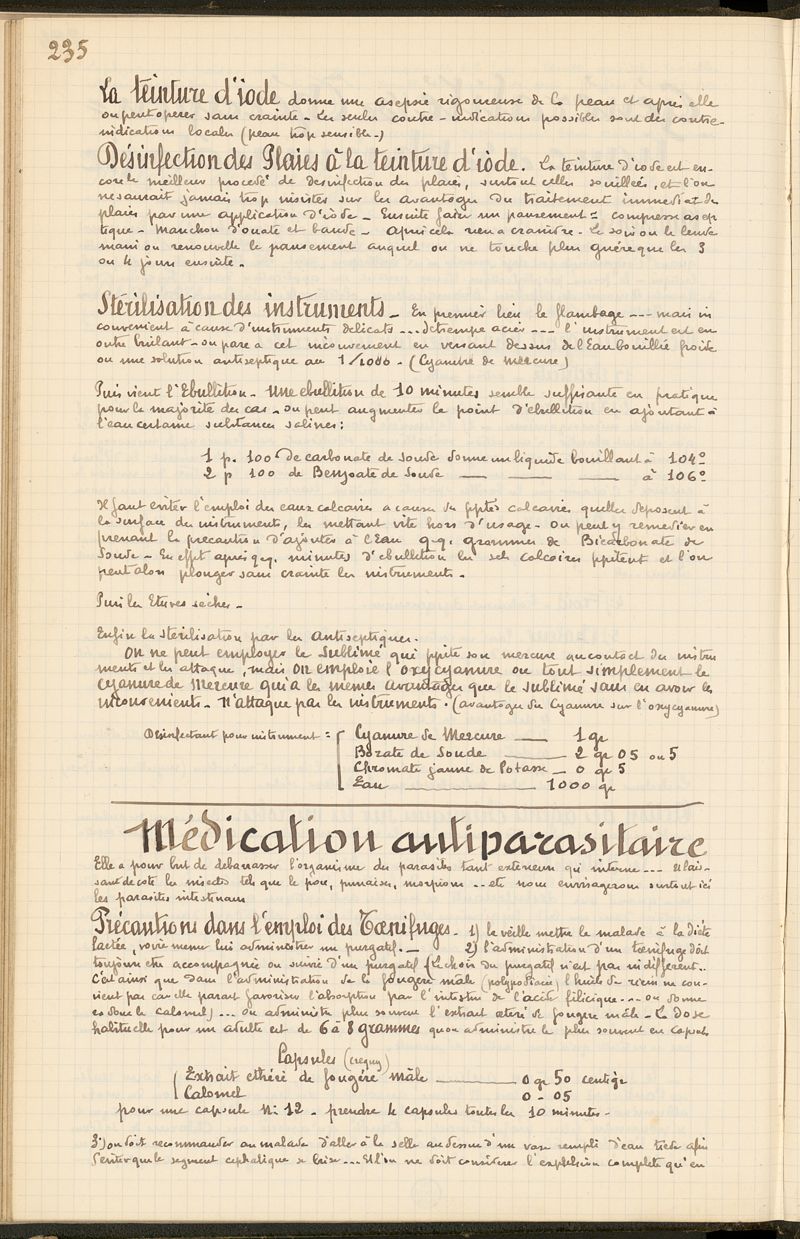 235
La teinture d'iode donne une asepsie rigoureuse de la peau et après elle
on peut opérer sans crainte - Les seules contre-indications possibles sont des contre-
indications locales (peau trop sensible-)
Désinfection des Plaies à la teinture d'iode. La teinture d'iode est en-
core le meilleur procédé de desinfection des plaies, surtout celles souillées, et l'on
ne saurait jamais trop insister sur les avantages du traitement immédiat des
plaies par une application d'iode - Ensuite faire un pansement = compresse asep
tique - Manchon d'ouate et bande - Après cela rien à craindre - Le soir ou le lende
main on renouvelle le pansement auquel on ne touche plus guère que les 3
ou 4 jours ensuite -
Stérilisation des instruments - En premier lieu le flambage --- mais in
convenient à cause d'instruments delicats ... détrempe acier --- l'instrument est en
outre brûlant - on pare à cet inconvenient en versant dessus de l'Eau bouillie froide
ou une solution antiseptique au 1/1000 - (Cyanure de Mercure)
Puis vient l'Ebullition - Une ebullition de 10 minutes semble suffisante en pratique
pour la majorité des cas - on peut augmenter le point d'ebullition en ajoutant à
l'eau certaines substances salines:
1 p. 100 de carbonate de soude donne un liquide bouillant à 104°
2 p 100 de Benzoate de Soude — — — à 106°
Il faut eviter l'emploi des eaux calcaires a cause des pptés calcaires quelles deposent à
la surface des instruments, les mettant vite hors d'usage - On peut y remedier en
prenant la precaution d'ajouter à l'Eau q.q. grammes de Bicarbonate de
Soude - En effet après q.q. minutes d'ebullition les sels calcaires ppitent et l'on
peut alors plonger sans crainte les instruments -
Puis les Etuves sèches -
Enfin la stérilisation par les Antiseptiques.
On ne peut employer le Sublimé qui ppite son mercure au contact des instru
ments et les attaque, mais on emploie l'oxycyanure ou tout simplement le
Cyanure de Mercure qui a les mêmes avantages que le sublimé sans en avoir les
inconvenients - N'attaque pas les instruments. (avantages du Cyanure sur l'oxycyanure)
Désinfectant pour instrument = Cyanure de Mercure — 1 gr
Borate de Soude — 2 gr 05 ou 5
Chromate jaune de Potasse — 0 gr 5
Eau — 1000 gr
Médication antiparasitaire
Elle a pour but de debarrasser l'organisme des parasites tant exterieurs qu'interne --- et lais-
sant de coté les insectes tels que le pou, punaises, morpions ... etc nous envisagerons surtout ici
les parasites intestinaux
Précautions dans l'emploi des Tœnifuges - 1) la veille mettre le malade à la diète
lactée, voire meme lui administrer un purgatif. — 2) l'administration d'un tœnifuge doit
toujours etre accompagnée ou suivie d'un purgatif (Le choix du purgatif n'est pas indifferent..
C'est ainsi que dans l'administration de la fougère mâle (polypodiacée) l'huile de ricin ne con-
vient pas car elle parait favoriser l'absorption par l'intestin de l'acide filicique --- on donne
donc le calomel) ... on administre plus souvent l'extrait ætéré de fougere mâle - La dose
habituelle pour un adulte est de 6 à 8 grammes qu'on administre le plus souvent en capsules
Capsules
Extrait ethéré de fougère mâle — 0 gr 50 centigr
Calomel 0 - 05
pour une capsule N: 12 - prendre 4 capsules toutes les 10 minutes -
3°) on doit recommander au malade d'aller à la selle au dessus d'un vase rempli d'eau tiède afin
d'eviter que le segment cephalique se brise ... Et l'on ne doit considerer l'expulsion complète qu'en